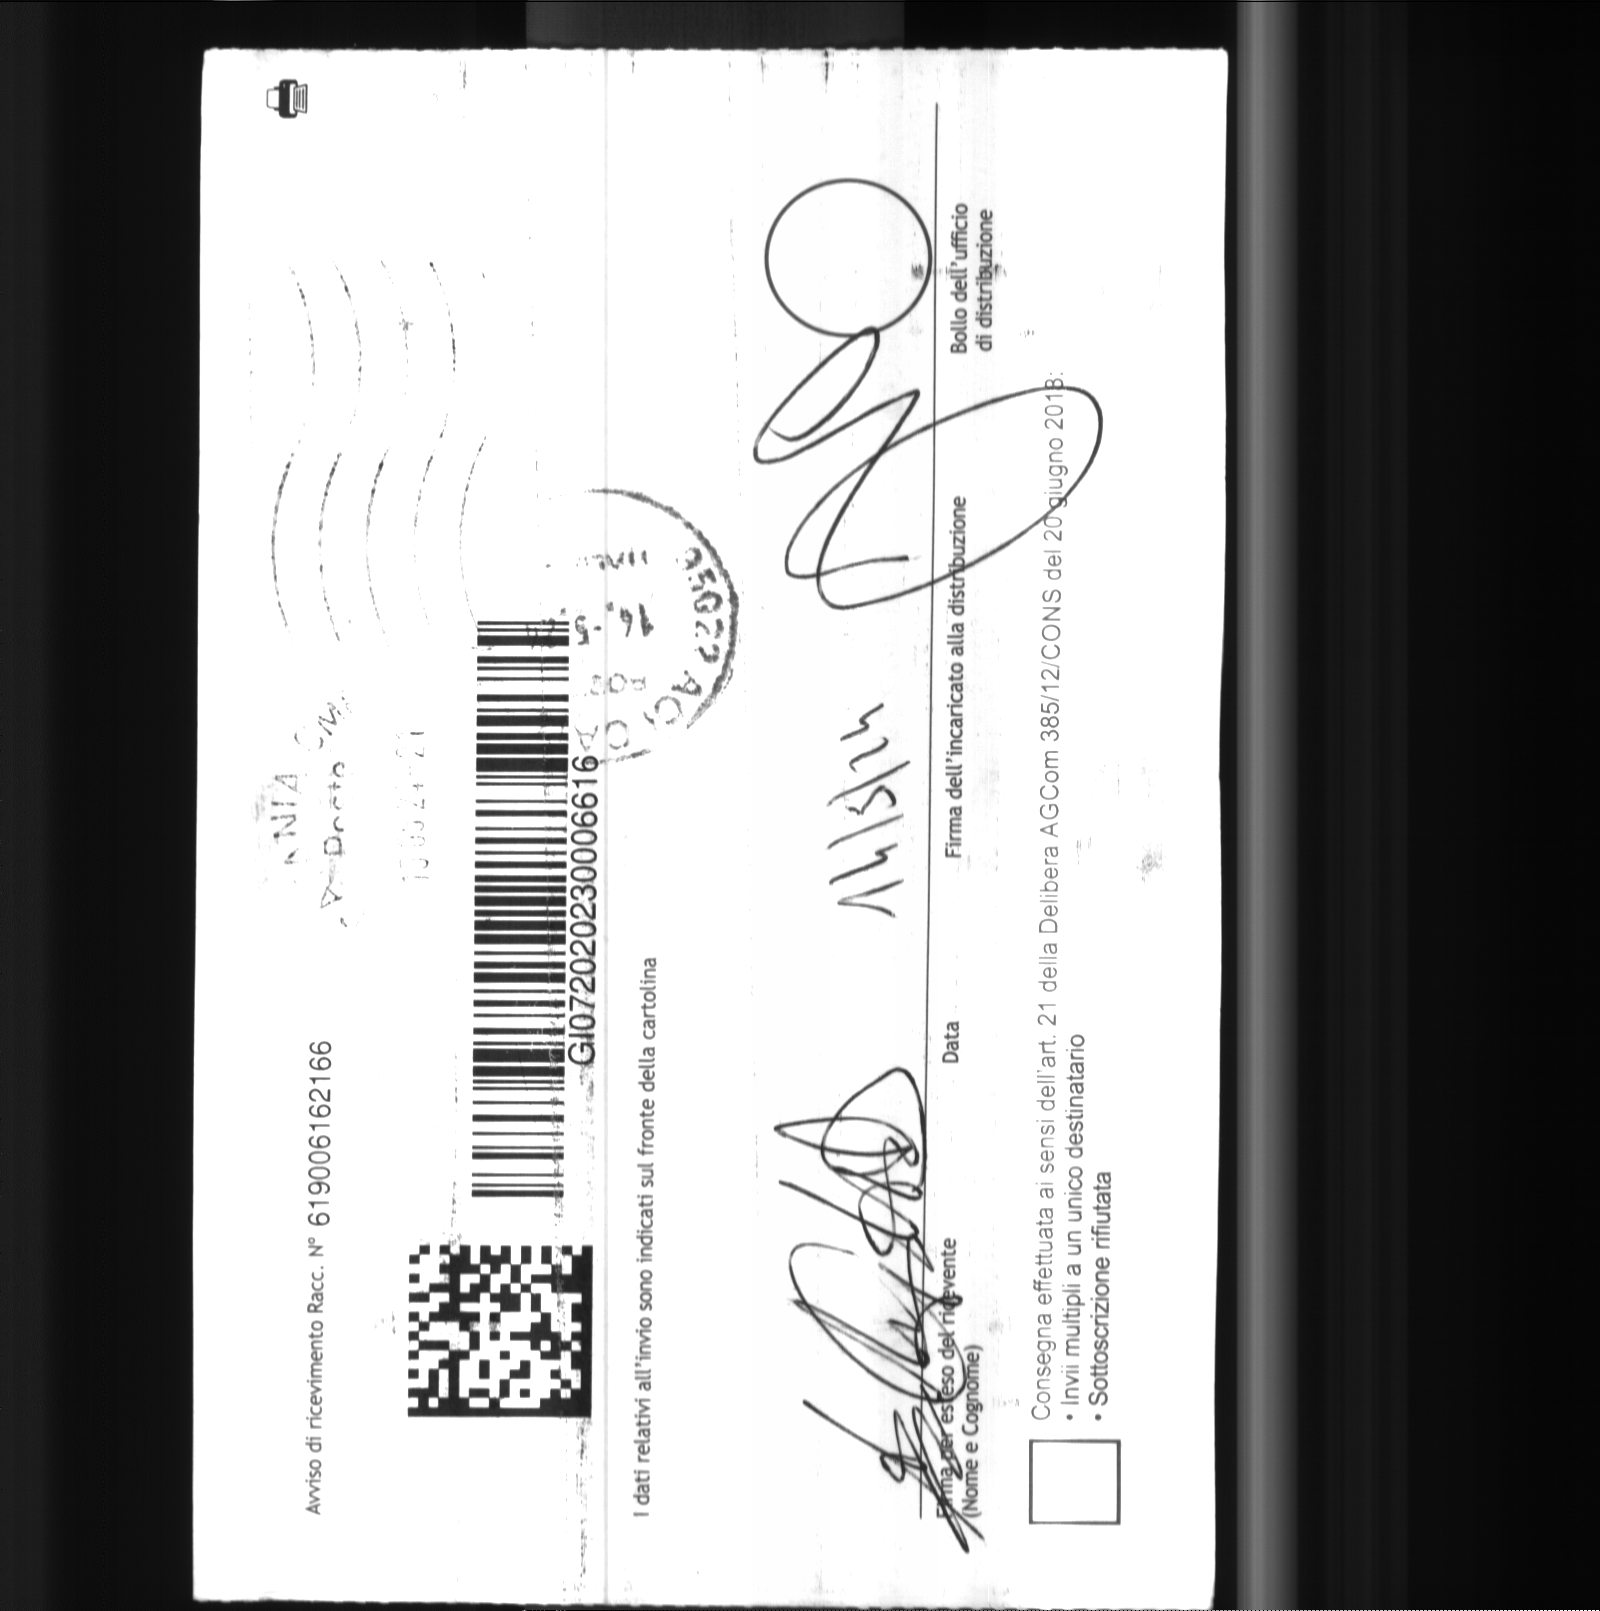 Avviso di ricevimento Racc. N° 619006162166
GI072020230006616
I dati relativi all'invio sono indicati sul fronte della cartolina
14/3/24
Firma per esteso del ricevente
(Nome e Cognome)
Data
Firma dell'incaricato alla distribuzione
Bollo dell'ufficio
di distribuzione
Consegna effettuata ai sensi dell'art. 21 della Delibera AGCom 385/12/CONS del 20 giugno 2013:
• Invii multipli a un unico destinatario
• Sottoscrizione rifiutata